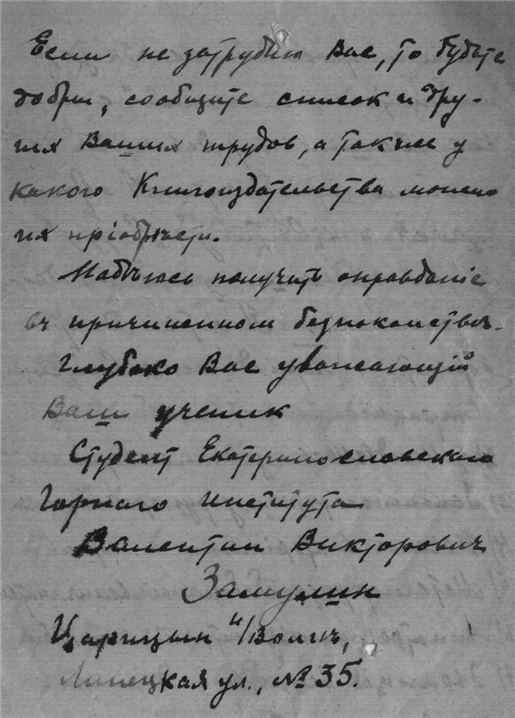 Если не затруднит Вас, то будьте
добры, сообщите список и дру-
гих Ваших трудов, а также у
какого Книгоиздательства можно
их пріобрѣсти.
Надѣюсь получить оправданіе
въ причиненном безпокойствѣ.
Глубоко Вас уважающій
Ваш ученик
Студент Екатеринославского
Горного Института
Валентин Викторович
Замулин
Царицын н/Волгѣ,
Липецкая ул., № 35.